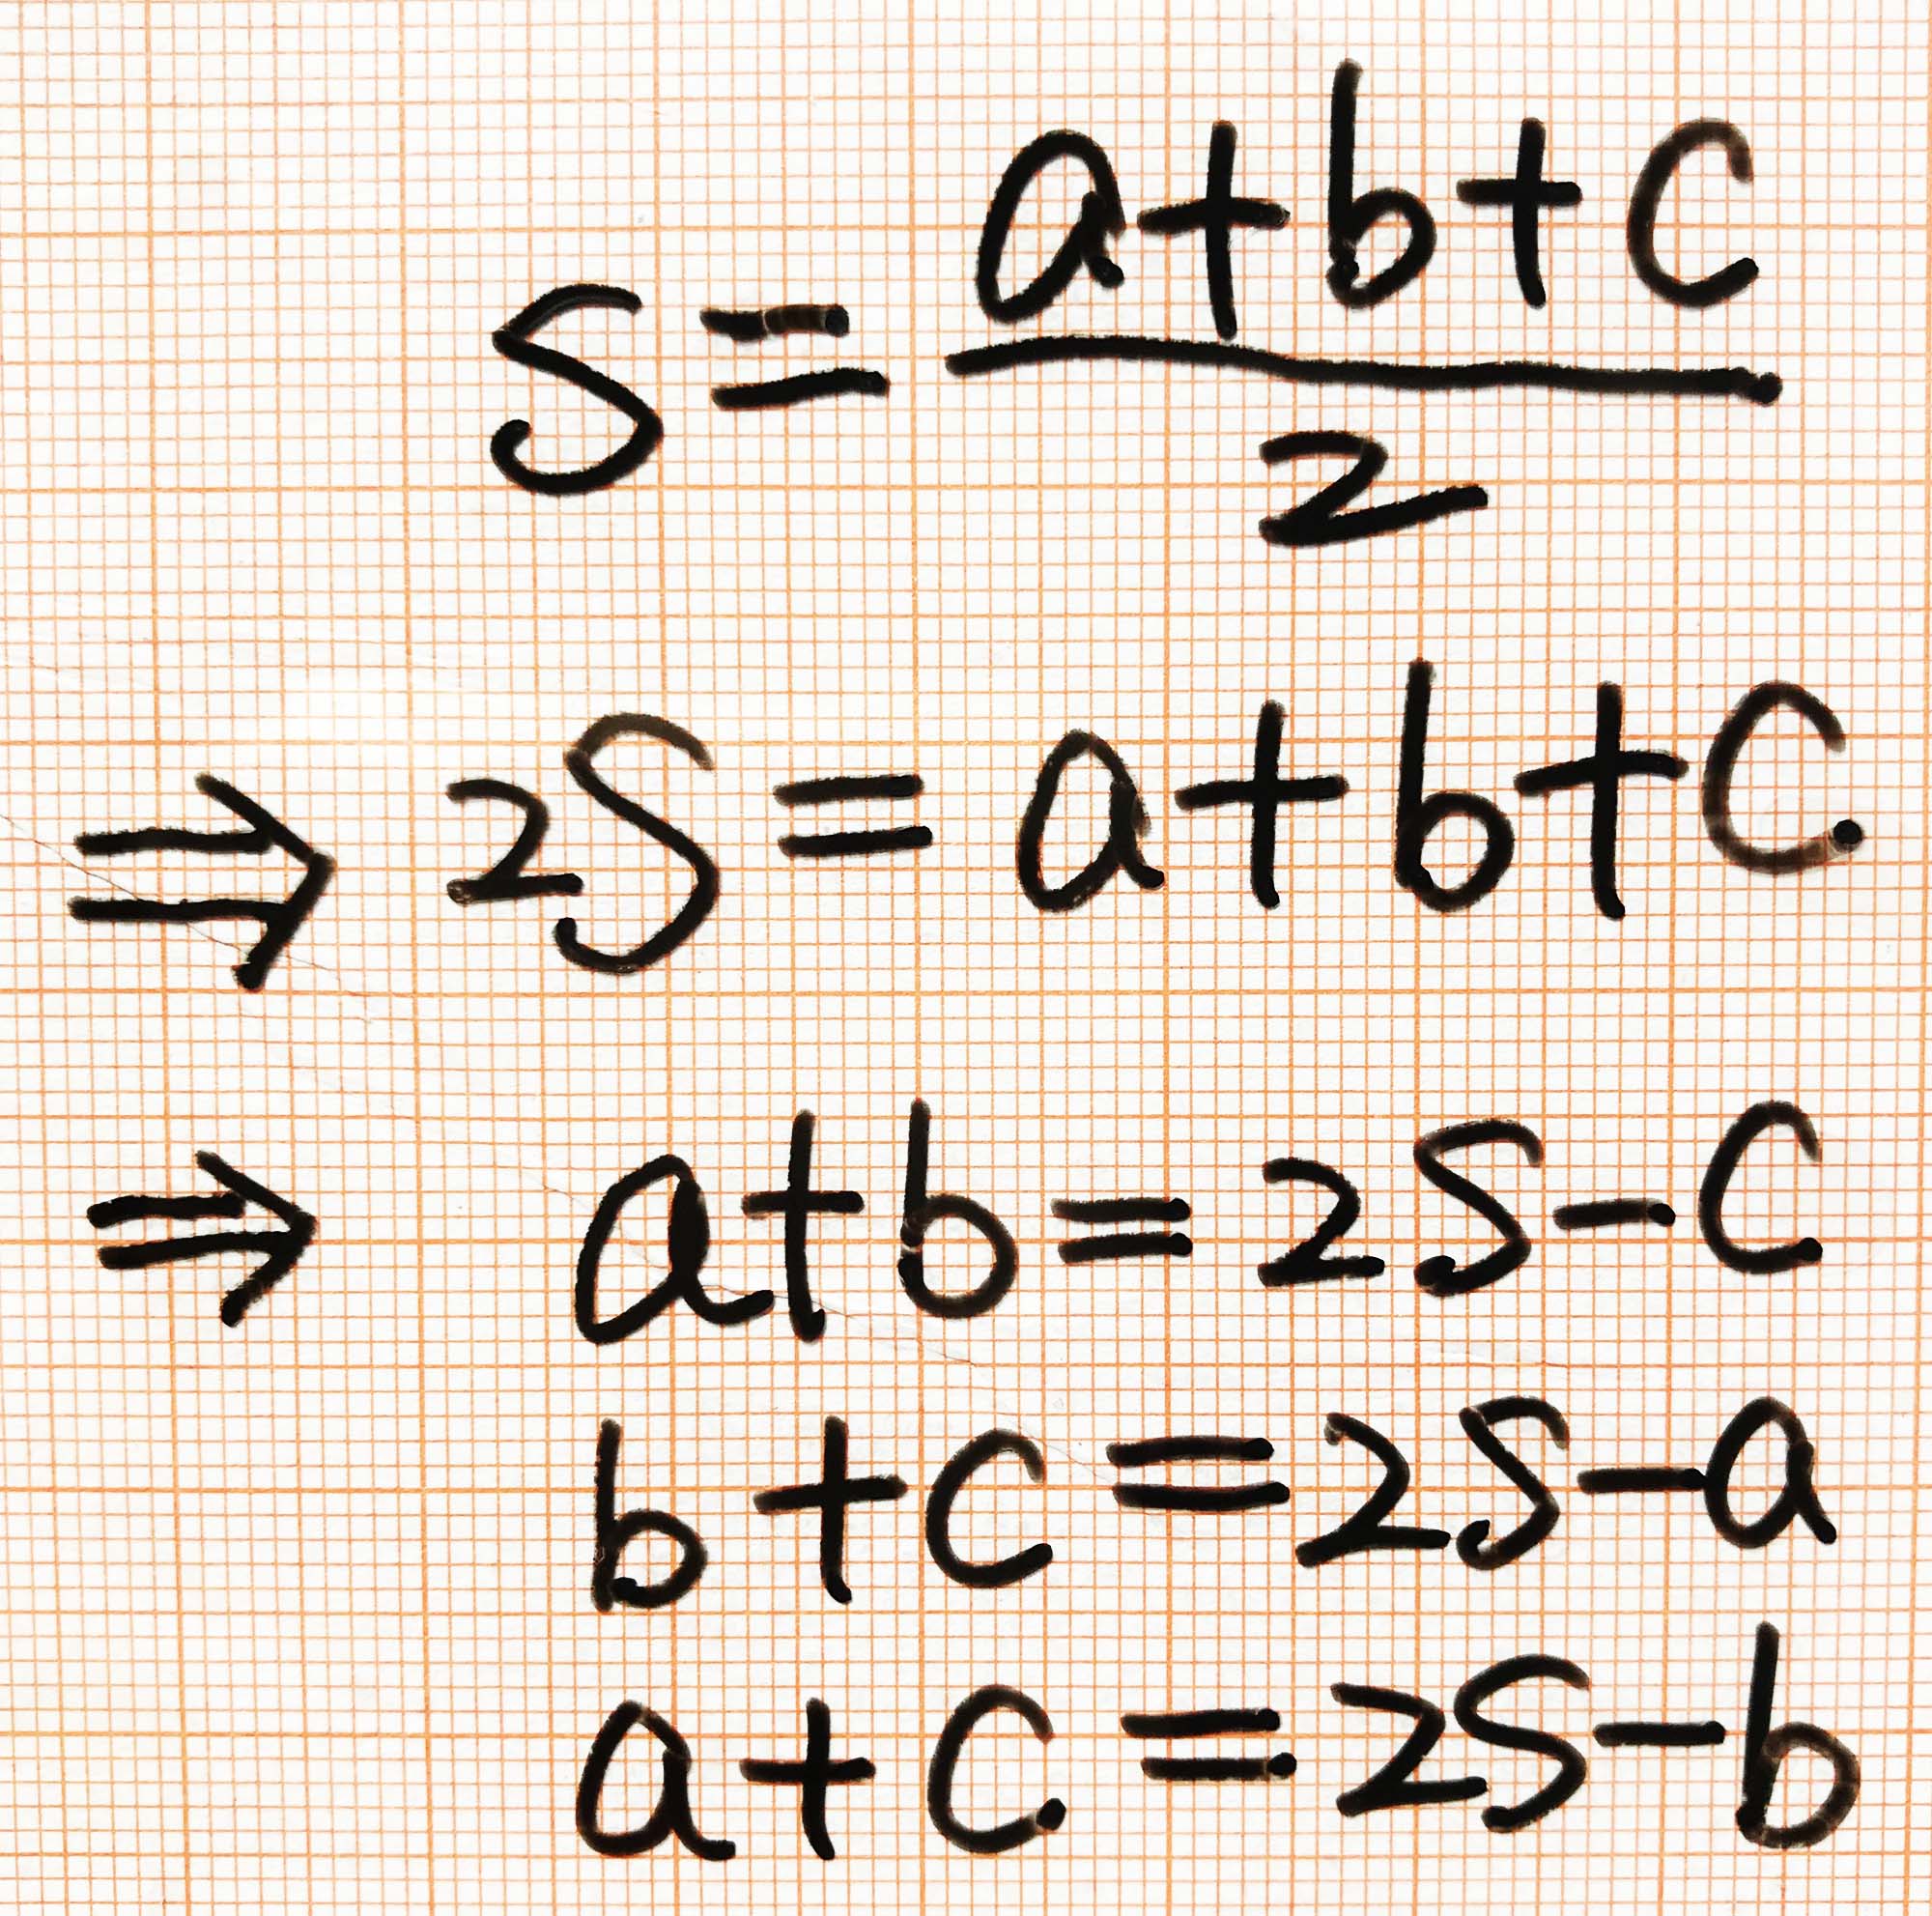 S = \frac{a+b+c}{2}
⇒ 2S = a+b+c
⇒ a+b = 2S-c
b+c = 2S-a
a+c = 2S-b